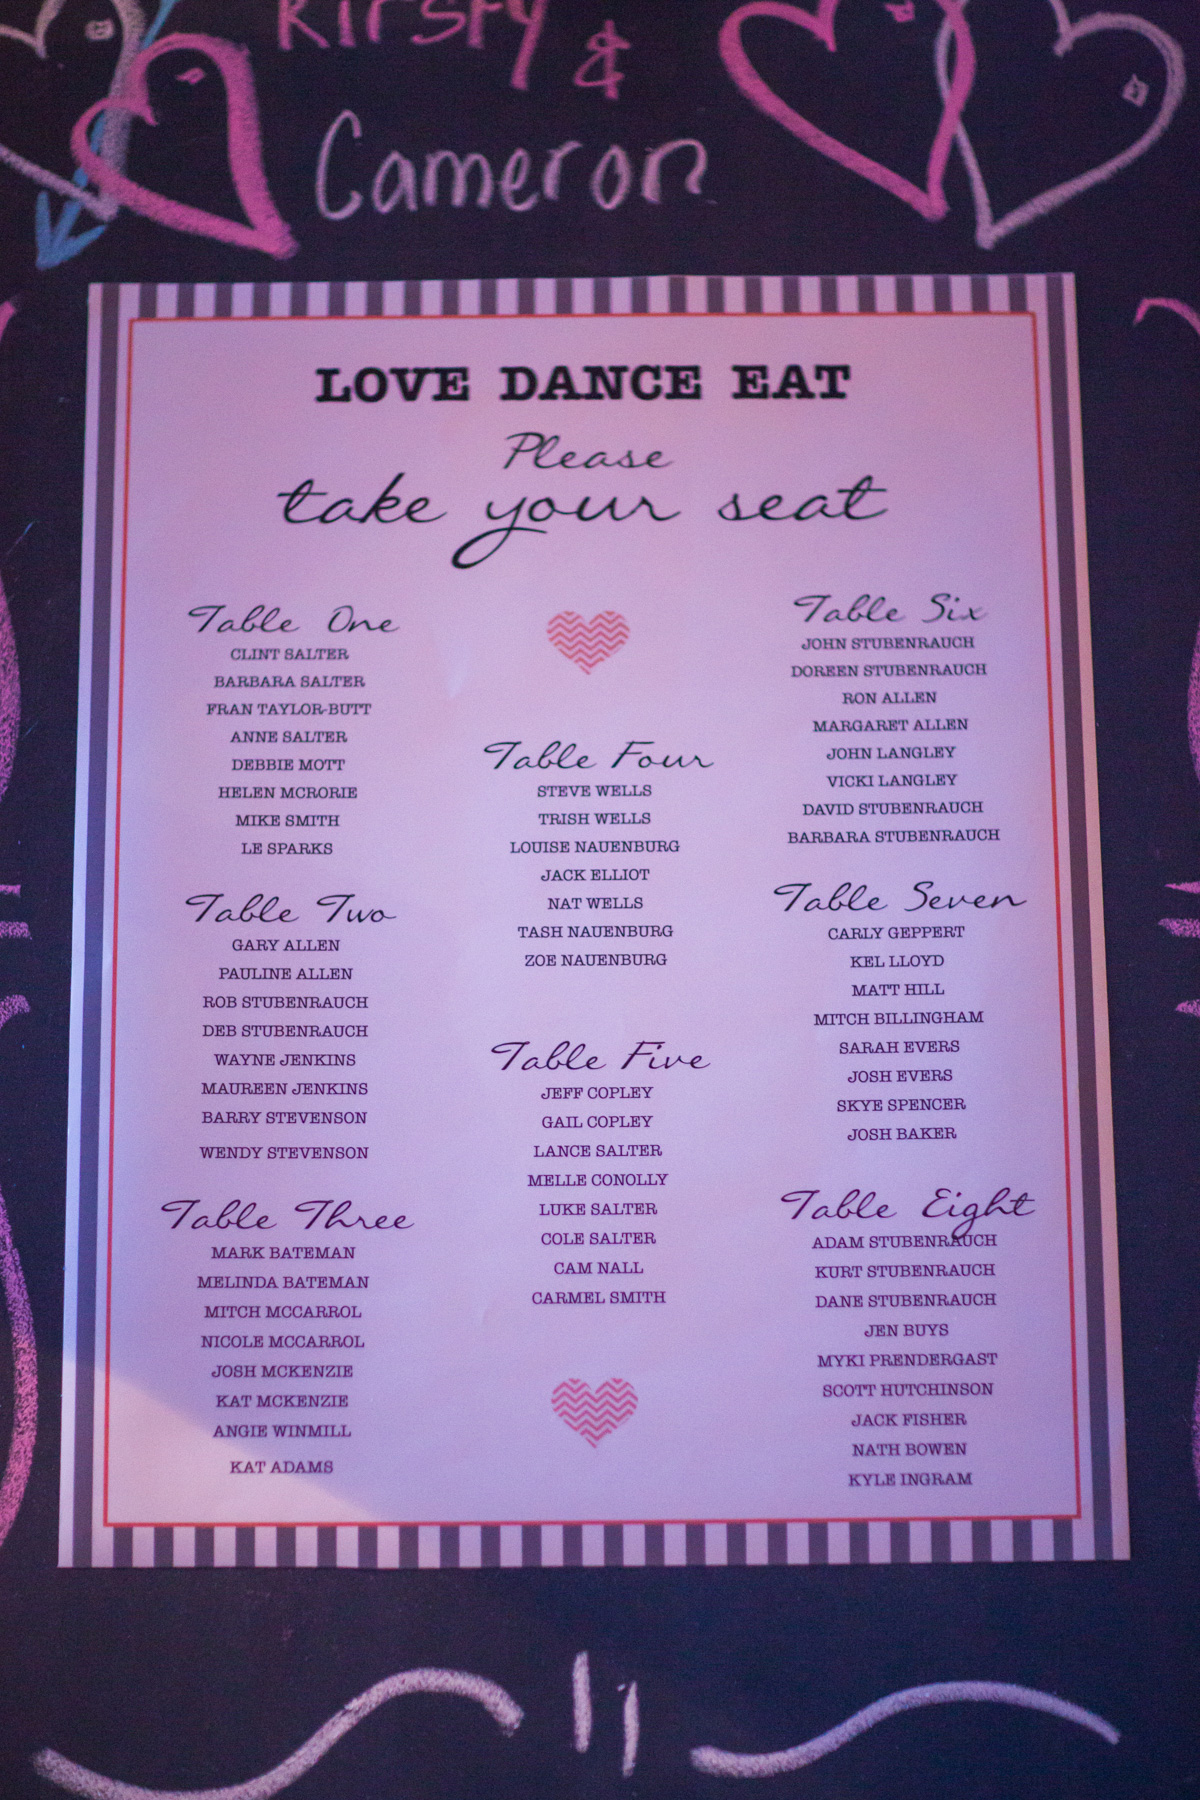 Kirsty &
Cameron
LOVE DANCE EAT
Please
take your seat
Table One
CLINT SALTER
BARBARA SALTER
FRAN TAYLOR-BUTT
ANNE SALTER
DEBBIE MOTT
HELEN MCRORIE
MIKE SMITH
LE SPARKS
Table Two
GARY ALLEN
PAULINE ALLEN
ROB STUBENRAUCH
DEB STUBENRAUCH
WAYNE JENKINS
MAUREEN JENKINS
BARRY STEVENSON
WENDY STEVENSON
Table Three
MARK BATEMAN
MELINDA BATEMAN
MITCH MCCARROL
NICOLE MCCARROL
JOSH MCKENZIE
KAT MCKENZIE
ANGIE WINMILL
KAT ADAMS
Table Four
STEVE WELLS
TRISH WELLS
LOUISE NAUENBURG
JACK ELLIOT
NAT WELLS
TASH NAUENBURG
ZOE NAUENBURG
Table Five
JEFF COPLEY
GAIL COPLEY
LANCE SALTER
MELLE CONOLLY
LUKE SALTER
COLE SALTER
CAM NALL
CARMEL SMITH
Table Six
JOHN STUBENRAUCH
DOREEN STUBENRAUCH
RON ALLEN
MARGARET ALLEN
JOHN LANGLEY
VICKI LANGLEY
DAVID STUBENRAUCH
BARBARA STUBENRAUCH
Table Seven
CARLY GEPPERT
KEL LLOYD
MATT HILL
MITCH BILLINGHAM
SARAH EVERS
JOSH EVERS
SKYE SPENCER
JOSH BAKER
Table Eight
ADAM STUBENRAUCH
KURT STUBENRAUCH
DANE STUBENRAUCH
JEN BUYS
MYKI PRENDERGAST
SCOTT HUTCHINSON
JACK FISHER
NATH BOWEN
KYLE INGRAM